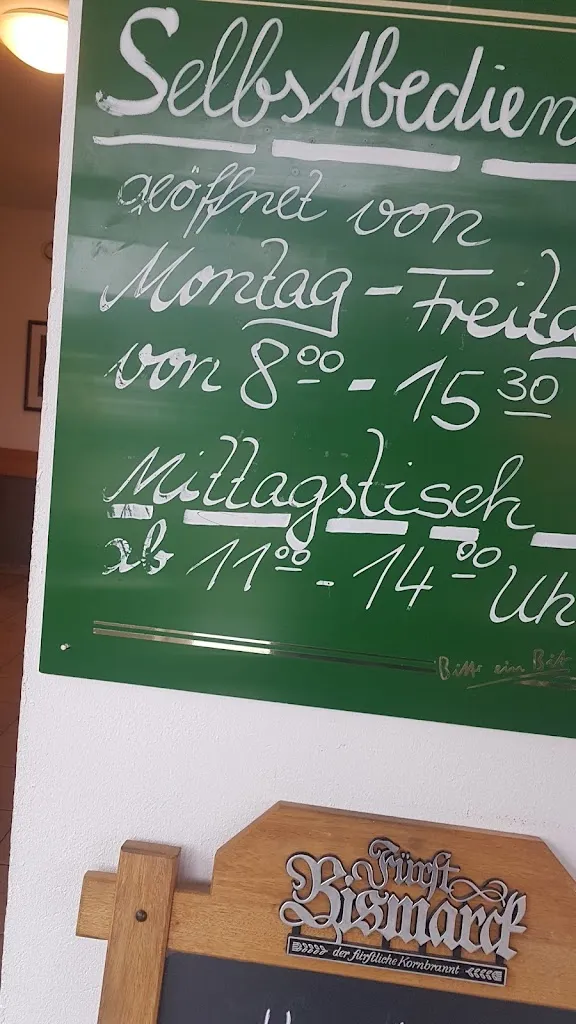 Selbstbedien
geöffnet von
Montag - Freita
von 8⁰⁰ - 15³⁰
Mittagstisch
ab 11⁰⁰ - 14⁰⁰ Uh
Bitte ein Bit
Fürst
Bismarck
der fürstliche Kornbrannt